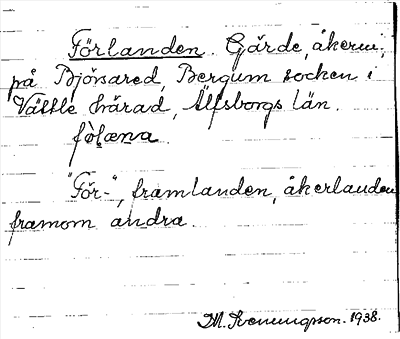 Förlanden. Gärde, åkerm.,
på Björsared, Bergum socken i
Vättle härad, Älfsborgs län.
fö̀læna.
"För-", framlanden, åkerlanden
framom andra.
M. Svenungsson. 1938.